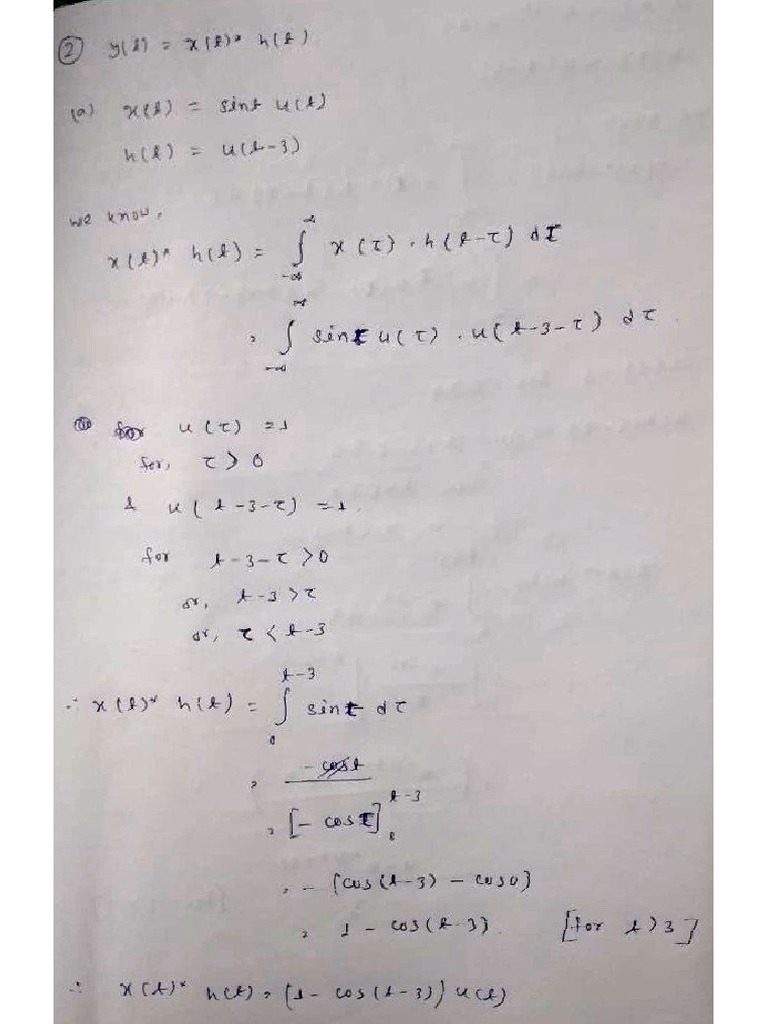 ② y(t) = x(t)* h(t)
(a) x(t) = sint u(t)
h(t) = u(t-3)
we know,
x(t)* h(t) = ∫_{-∞}^{∞} x(τ) . h(t-τ) dτ
= ∫_{-∞}^{∞} sinτ u(τ) . u(t-3-τ) dτ.
u(τ) = 1
for, τ > 0
& u(t-3-τ) = 1.
for t-3-τ > 0
or, t-3 > τ
or, τ < t-3
∴ x(t)* h(t) = ∫_{0}^{t-3} sinτ dτ
= [- cosτ]_{0}^{t-3}
= - [cos(t-3) - cos0]
= 1 - cos(t-3). [for t>3]
∴ x(t)* h(t) = (1- cos(t-3)) u(t)